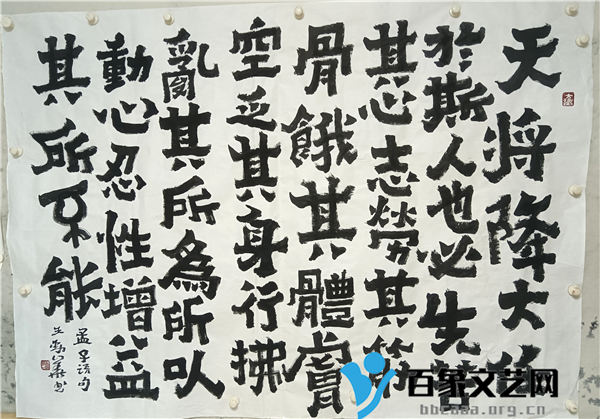 天将降大任
於斯人也必先苦
其心志勞其筋
骨餓其體膚
空乏其身行拂
亂其所為所以
動心忍性增益
其所不能
孟子語句
百家文艺网